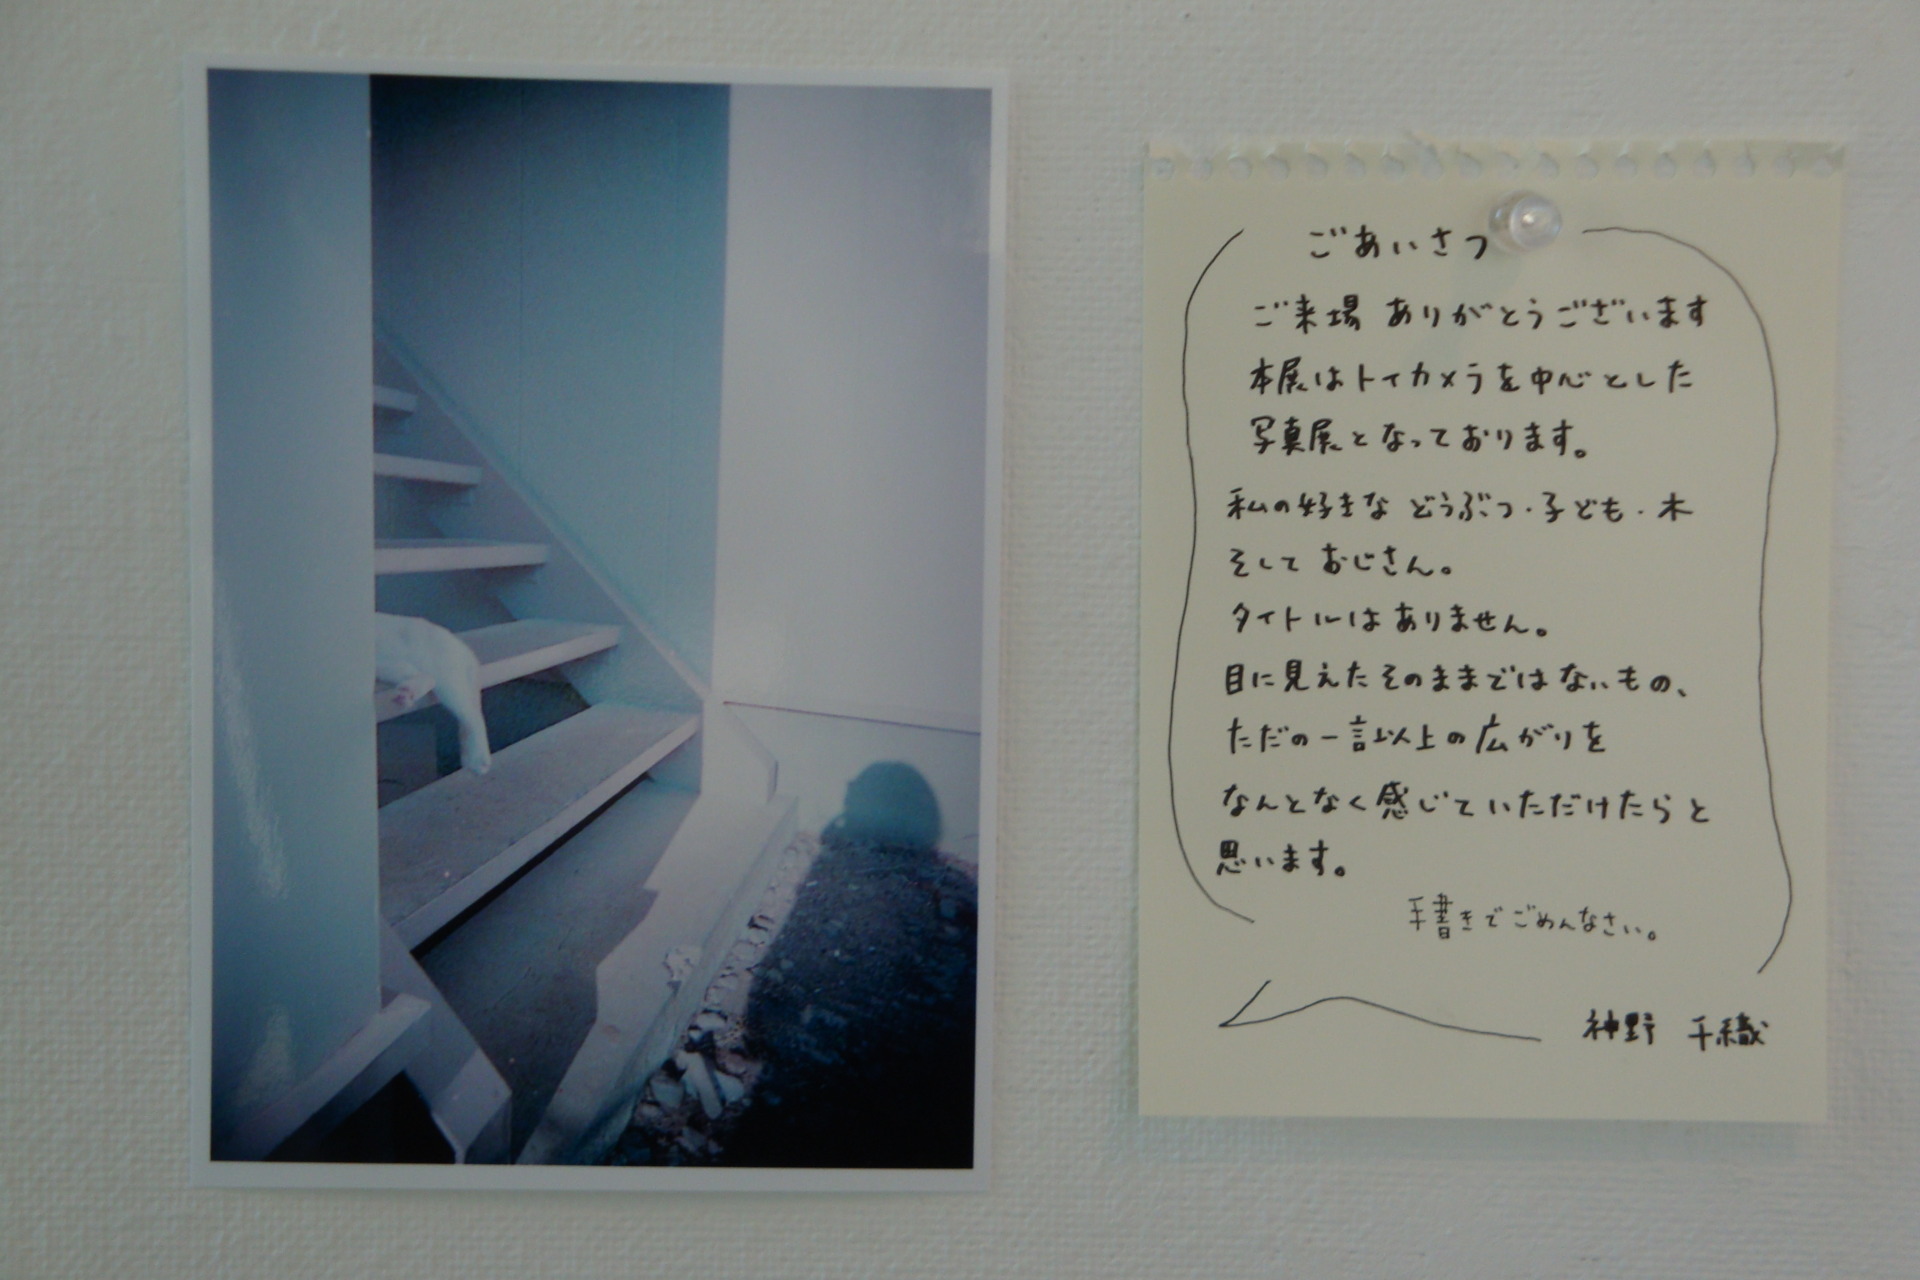 ごあいさつ
ご来場 ありがとうございます
本展はトイカメラを中心とした
写真展となっております。
私の好きな どうぶつ・子ども・木
そして おじさん。
タイトルは ありません。
目に見えたそのままではないもの、
ただの一言以上の広がりを
なんとなく感じていただけたらと
思います。
手書きでごめんなさい。
神野 千織